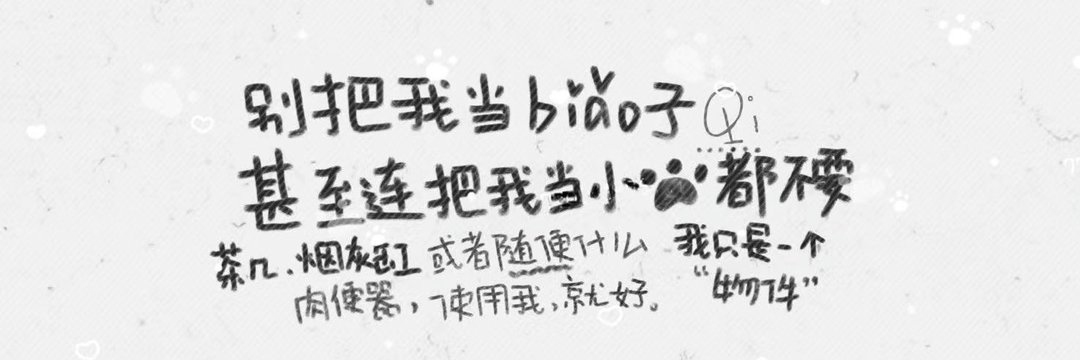 别把我当biǎo子 Qi
甚至连把我当小🐾都不要
茶几、烟灰缸或者随便什么 我只是一个
肉便器，使用我，就好。 “物件”